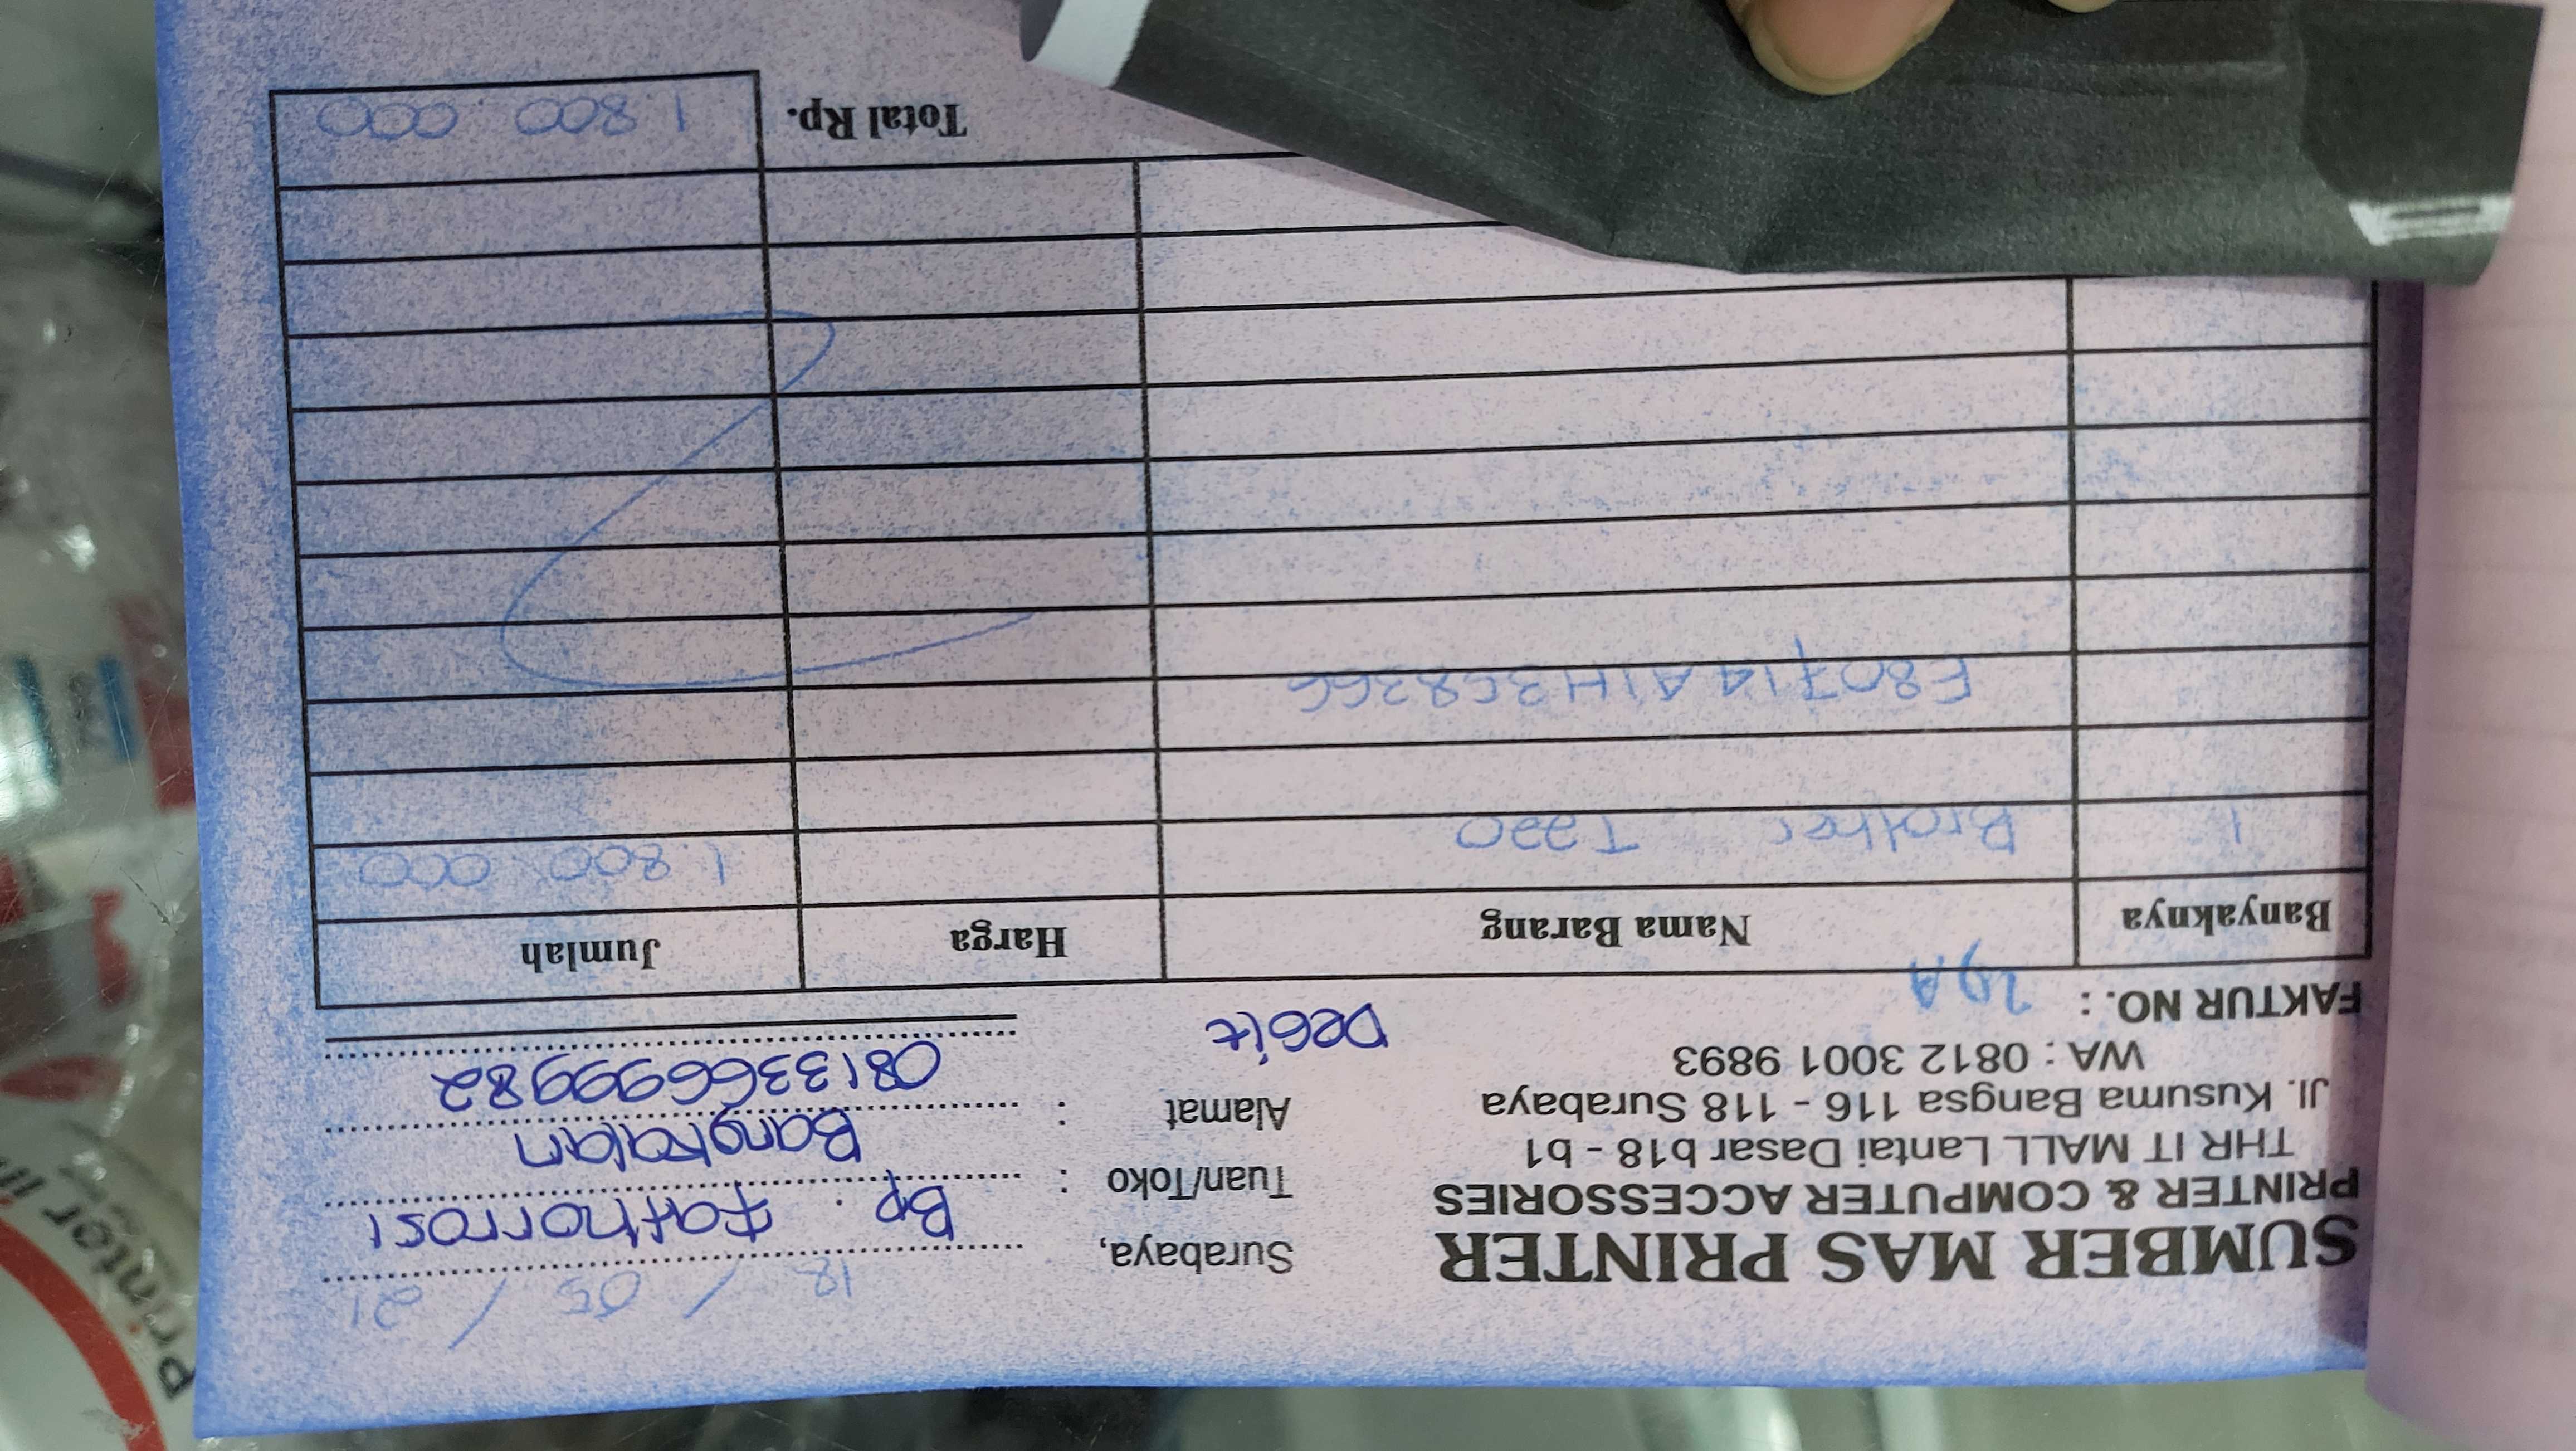 SUMBER MAS PRINTER
PRINTER & COMPUTER ACCESSORIES
THR IT MALL Lantai Dasar b18 - b1
Jl. Kusuma Bangsa 116 - 118 Surabaya
WA : 0812 3001 9893
FAKTUR NO. :
Debit
Surabaya, 12 / 05 / 21
Tuan/Toko : Bp. Fathorrosi
Bangkalan
Alamat : 081336699982
Banyaknya Nama Barang Harga Jumlah
1 Brother T220 1.800.000
E80714A1H368366
Total Rp. 1.800.000
Printer